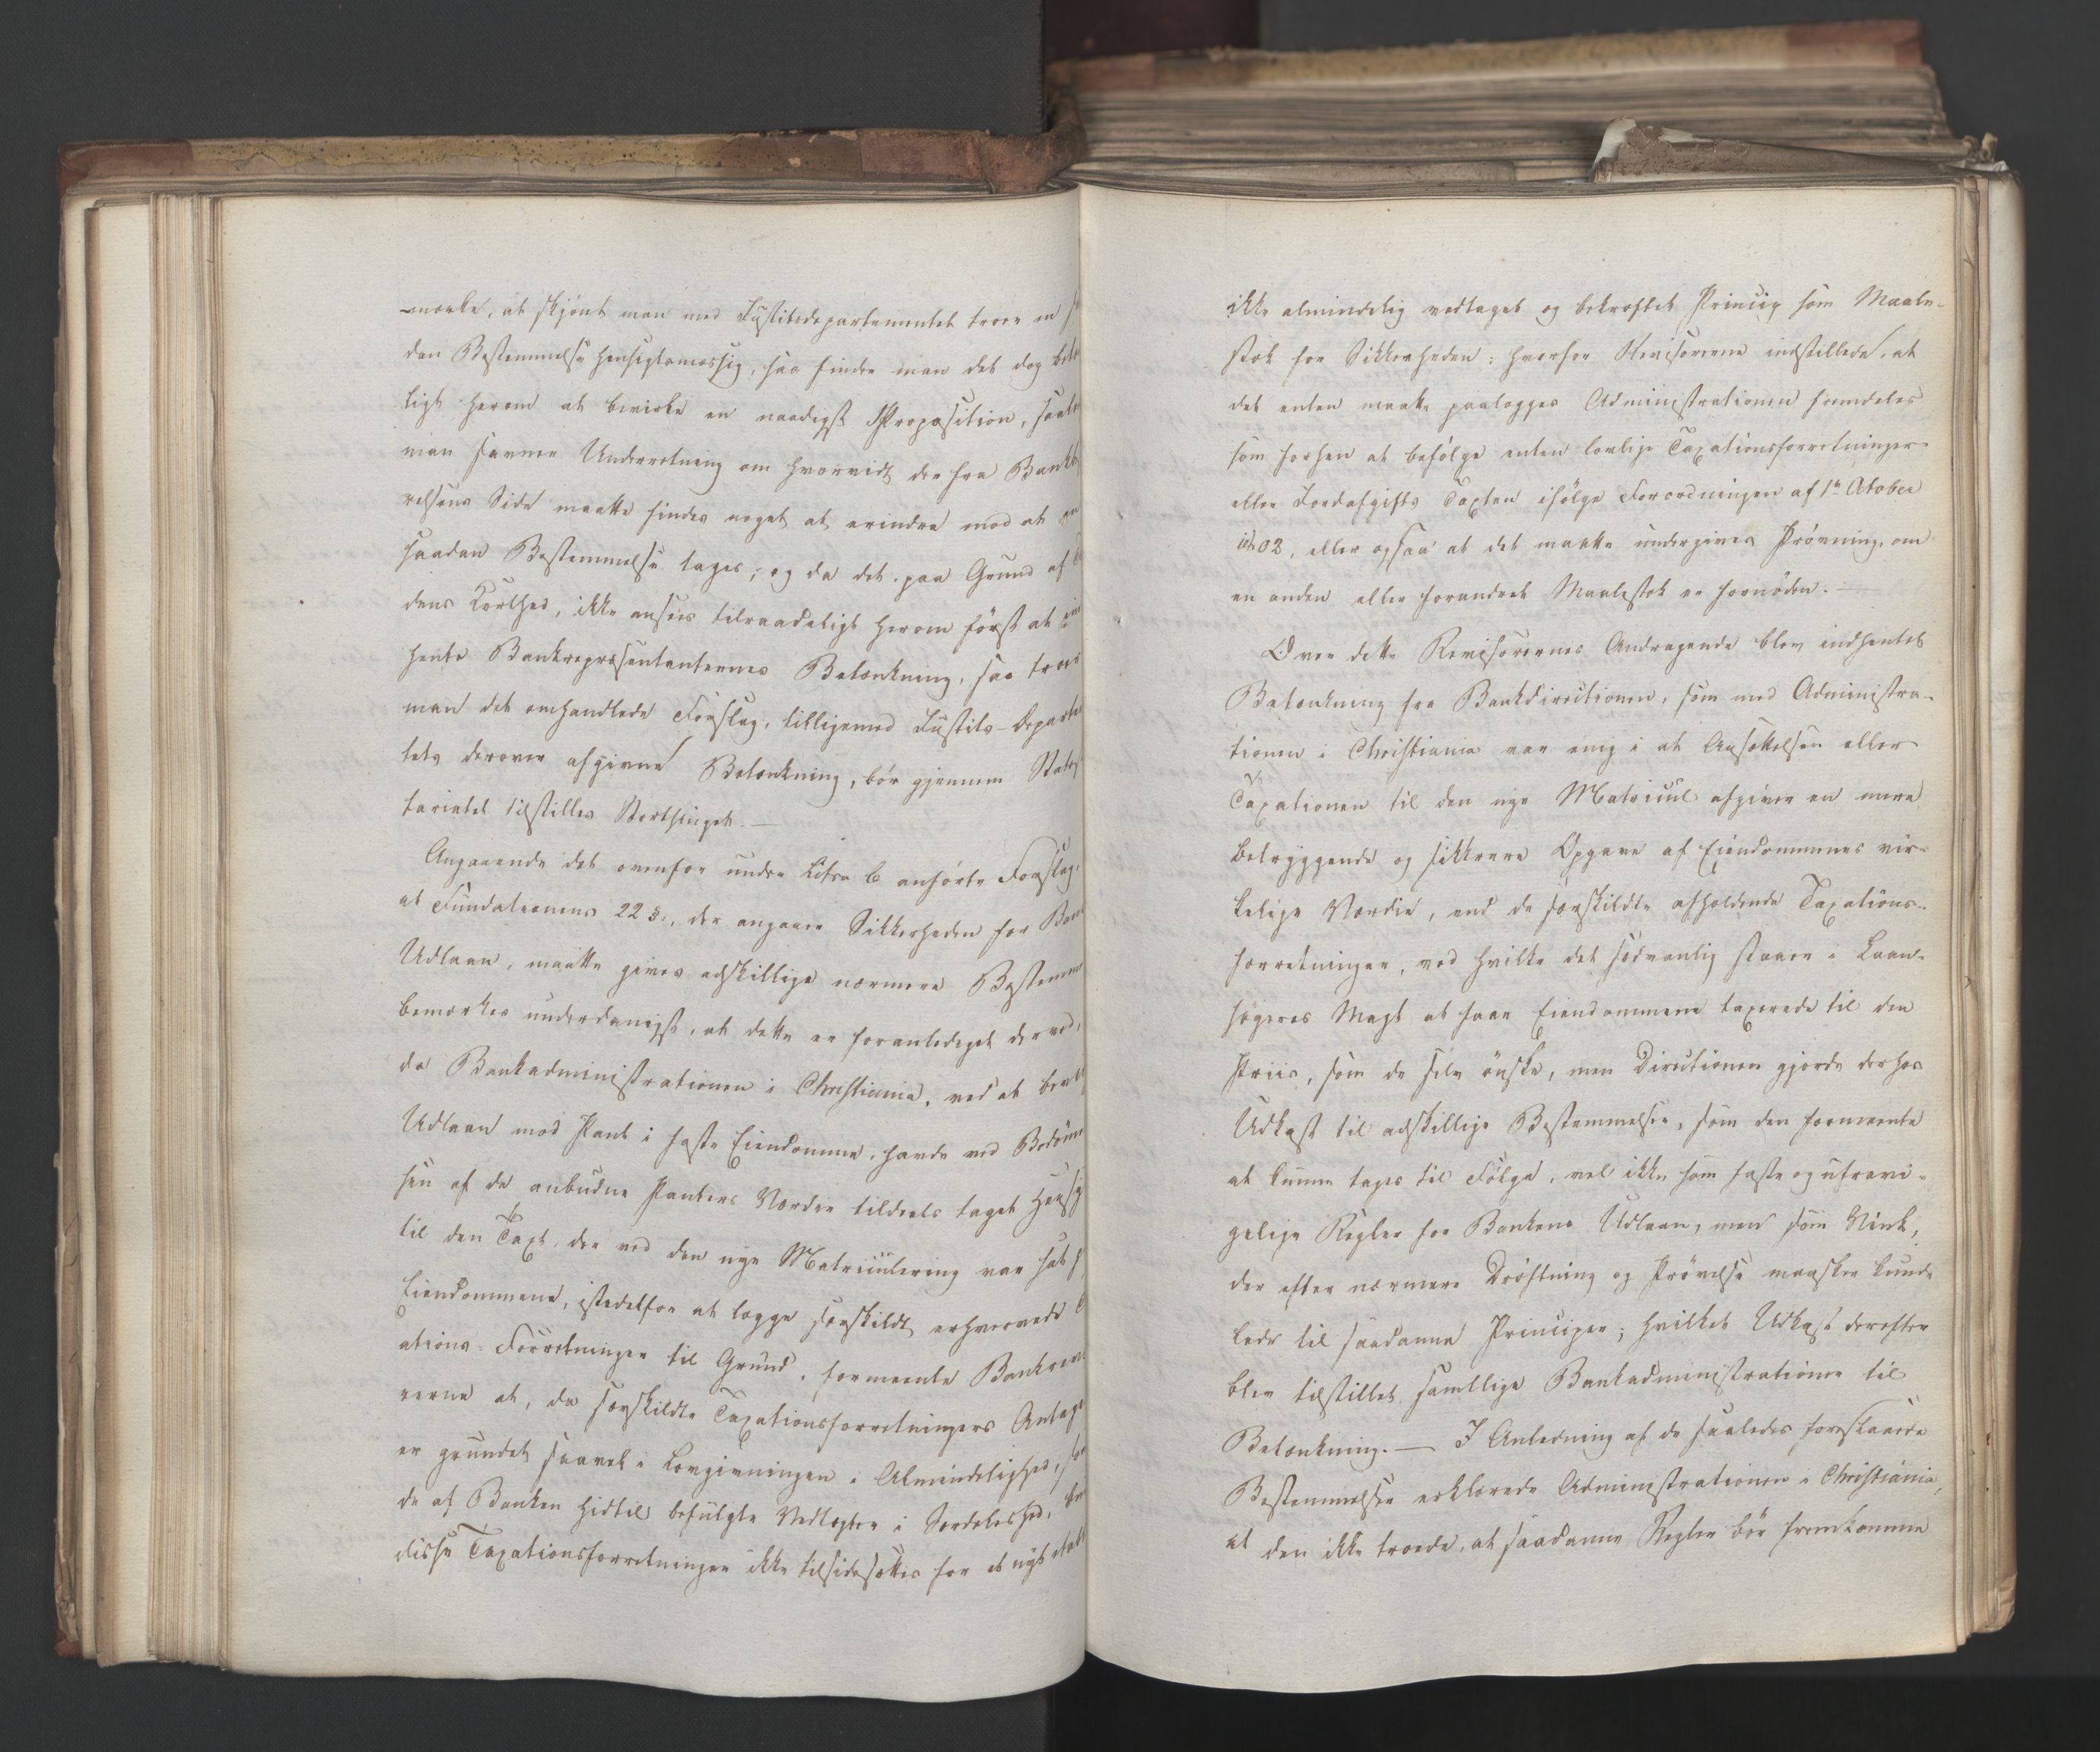 -mærke, at skjönt man med Justitsdepartementet troer en
dan Bestemmelse hensigtsmæssig, saa finder man det dog
ligt herom at bevirke en naadigst Proposition, saale
man savner Underretning om hvorvidt der fra Bank
relsens Side maatte findes noget at erindre mod at en
saadan Bestemmelse tages; og da det, paa Grund af
dens Korthed, ikke ansees tilraadeligt herom först at ind
hente Bankrepræsentanternes Betænkning, saa troer
man det omhandlede Forslag, tilligemed Justits-Departe
tets derover afgivne Betænkning, bör gjennem Stats
tariatet tilstilles Storthinget. —
Angaaende det ovenfor under Litra b anförte Forslag,
at Fundationens 22 §., der angaaer Sikkerheden for Ban
Udlaan, maatte gives adskillige nærmere Bestemm
bemærkes underdanigst, at dette er foranlediget derved,
da Bankadministrationen i Christiania, ved at bev
Udlaan mod Pant i faste Eiendomme, havde ved Bedömm
sen af de anbudne Panters Værdie tildeels taget Hensy
til den Taxt, der ved den nye Matriculering var sat
Eiendommene, istedetfor at lægge særskildt erhvervede
ations-Forretninger til Grund, formeente Bankrevi
rerne at, da særskildte Taxationsforretningers Antage
er grundet saavel i Lovgivningen i Almindelighed, som
de af Banken hidtil befulgte Vedtægter i Særdeleshed,
disse Taxationsforretninger ikke tilsidesættes for et nyt
ikke almindelig vedtaget og bekræftet Princip som Maale-
stok for Sikkerheden; hvorfor Revisorerne indstillede, at
det enten maatte paalægges Administrationen fremdeles
som forhen at befölge enten lovlige Taxationsforretninger
eller Jordafgifts Taxten ifölge Forordningen af 1te October
1802, eller ogsaa at det maatte undergives Prövning, om
en anden eller forandret Maalestok er fornöden. —
Over dette Revisorernes Andragende blev indhentet
Betænkning fra Bankdirectionen, som med Administra-
tionen i Christiania var enig i at Ansættelsen eller
Taxationen til den nye Matricul afgiver en mere
betryggende og sikkrere Opgave af Eiendommenes vir-
kelige Værdie, end de særskildte afholdende Taxations-
forretninger, ved hvilke det sædvanlig staaer i Laan-
sögeres Magt at faae Eiendommene taxerede til den
Priis, som de selv önske, men Directionen gjorde derhos
Udkast til adskillige Bestemmelser, som den formeente
at kunne tages til Fölge, vel ikke som faste og ufravi-
gelige Regler for Bankens Udlaan, men som Vink,
der efter nærmere Dröftning og Prövelse maaskee kunde
lede til saadanne Principer; hvilket Udkast derefter
blev tilstillet samtlige Bankadministrationer til
Betænkning. — I Anledning af de saaledes foreslaaede
Bestemmelser erklærede Administrationen i Christiania,
at den ikke troede, at saadanne Regler bör fremkomme